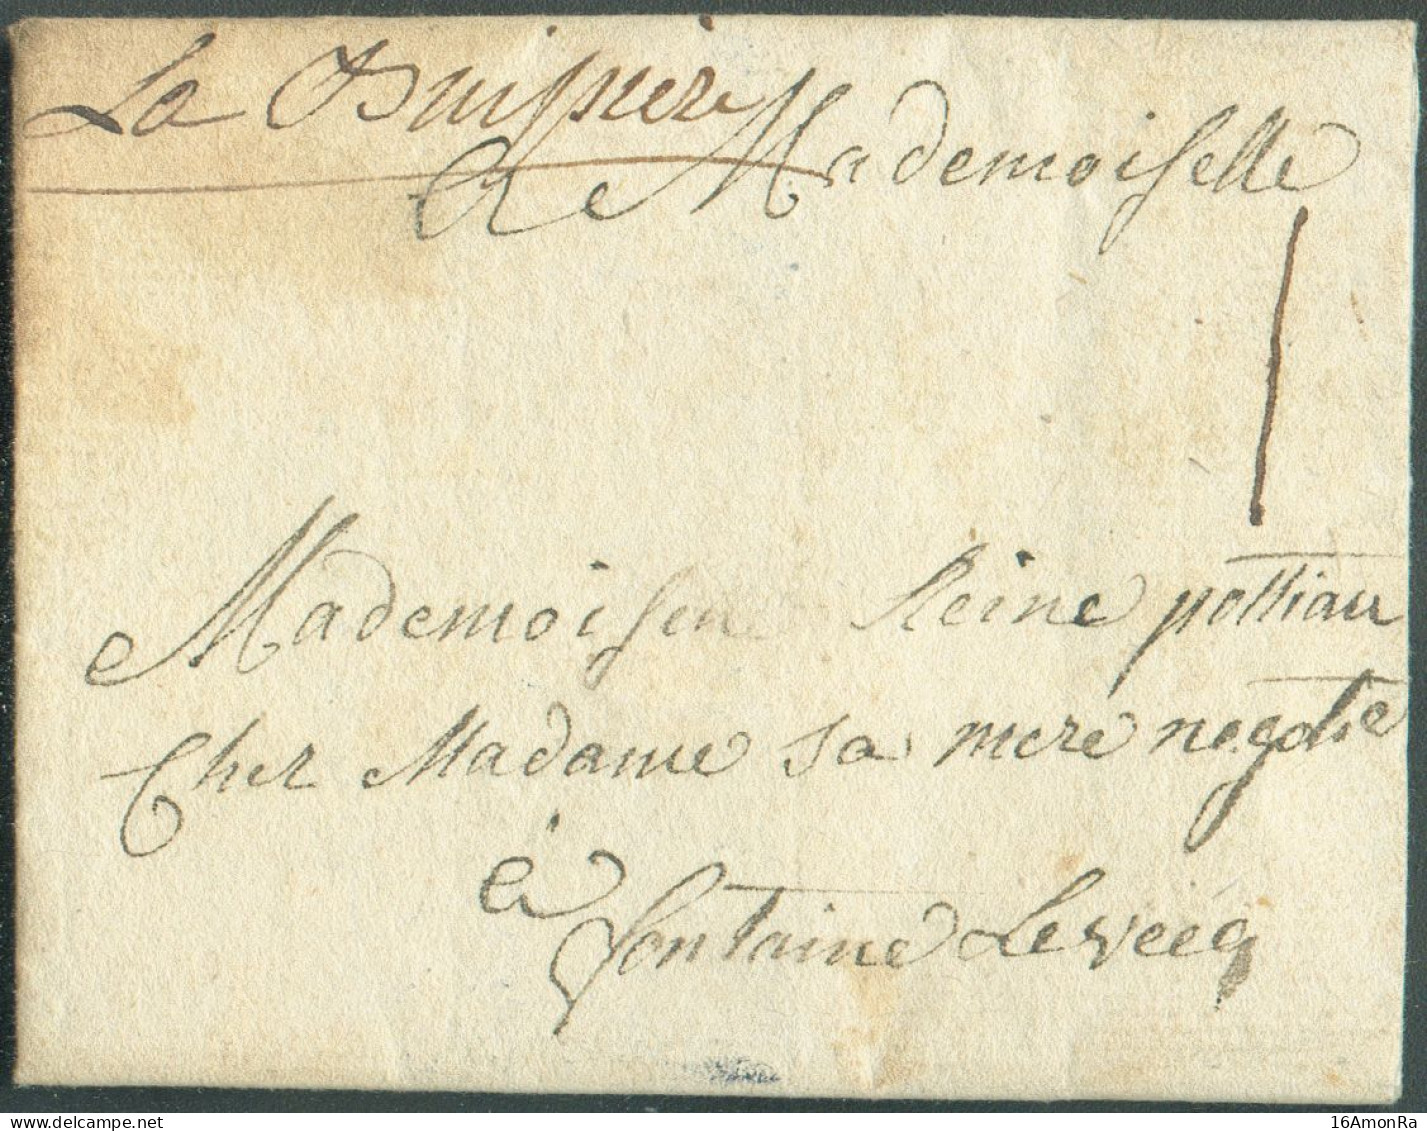 La Buissiere
A Mademoiselle
1
Mademoisen Reine pottiau
Cher Madame sa mere negotie
à
fontaine Leveeq
16AmonRa